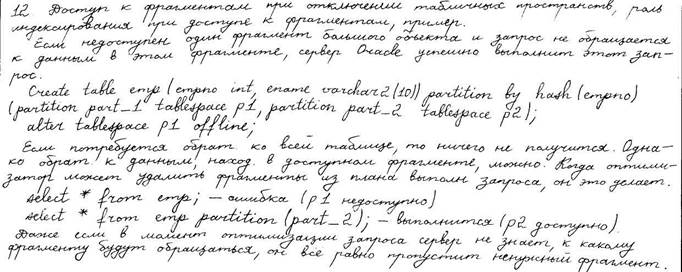 12 Доступ к фрагментам при отключении табличных пространств, роль
индексирования при доступе к фрагментам, пример.
Если недоступен один фрагмент большого объекта и запрос не обращается
к данным в этом фрагменте, сервер Oracle успешно выполнит этот зап-
рос.
Create table emp (empno int, ename varchar2(10)) partition by hash (empno)
(partition part_1 tablespace p1, partition part_2 tablespace p2);
alter tablespace p1 offline;
Если потребуется обрат ко всей таблице, то ничего не получится. Одна-
ко обрат к данным, наход. в доступном фрагменте, можно. Когда оптими-
затор может удалить фрагменты из плана выполн запроса, он это делает.
select * from emp; – ошибка (p1 недоступно)
select * from emp partition (part_2); – выполнится (p2 доступно).
Даже если в момент оптимизации запроса сервер не знает, к какому
фрагменту будут обращаться, он все равно пропустит ненужный фрагмент.